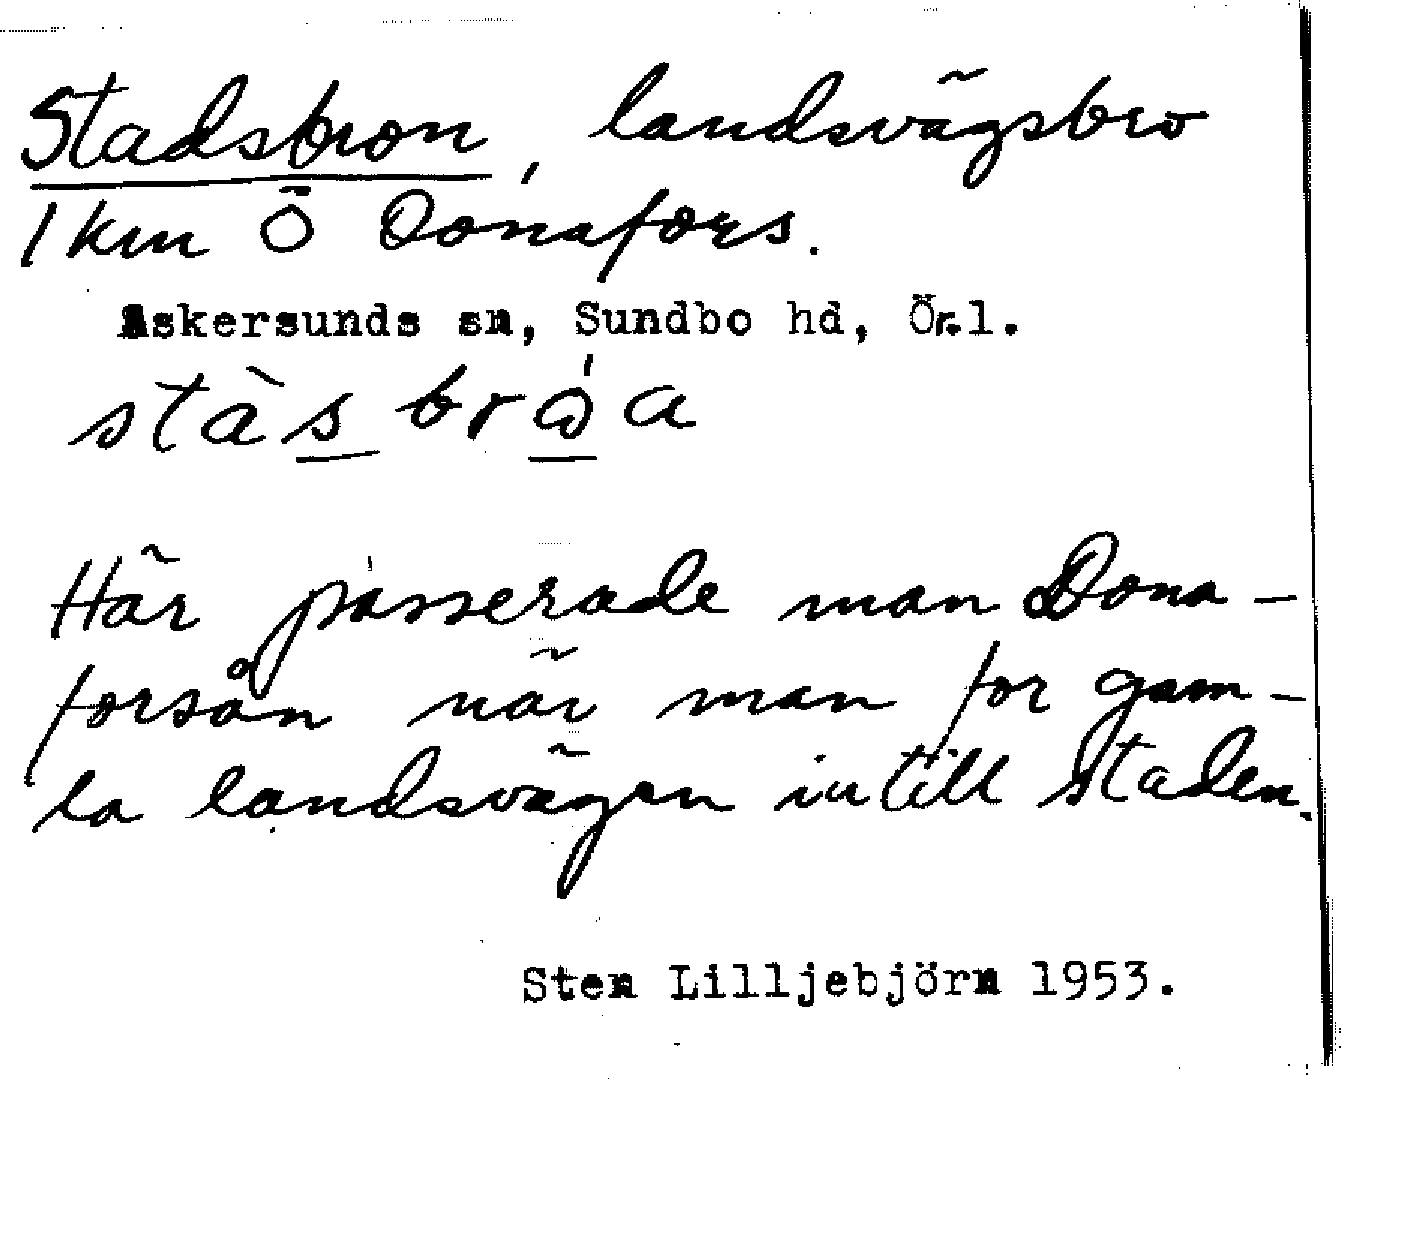 Stadsbron, landsvägsbro
1 km Ö Donafors.
Askersunds sn, Sundbo hd, Ör.l.
Här passerade man Dona-
forsån när man for gam-
la landsvägen in till staden.
Sten Lilljebjörn 1953.